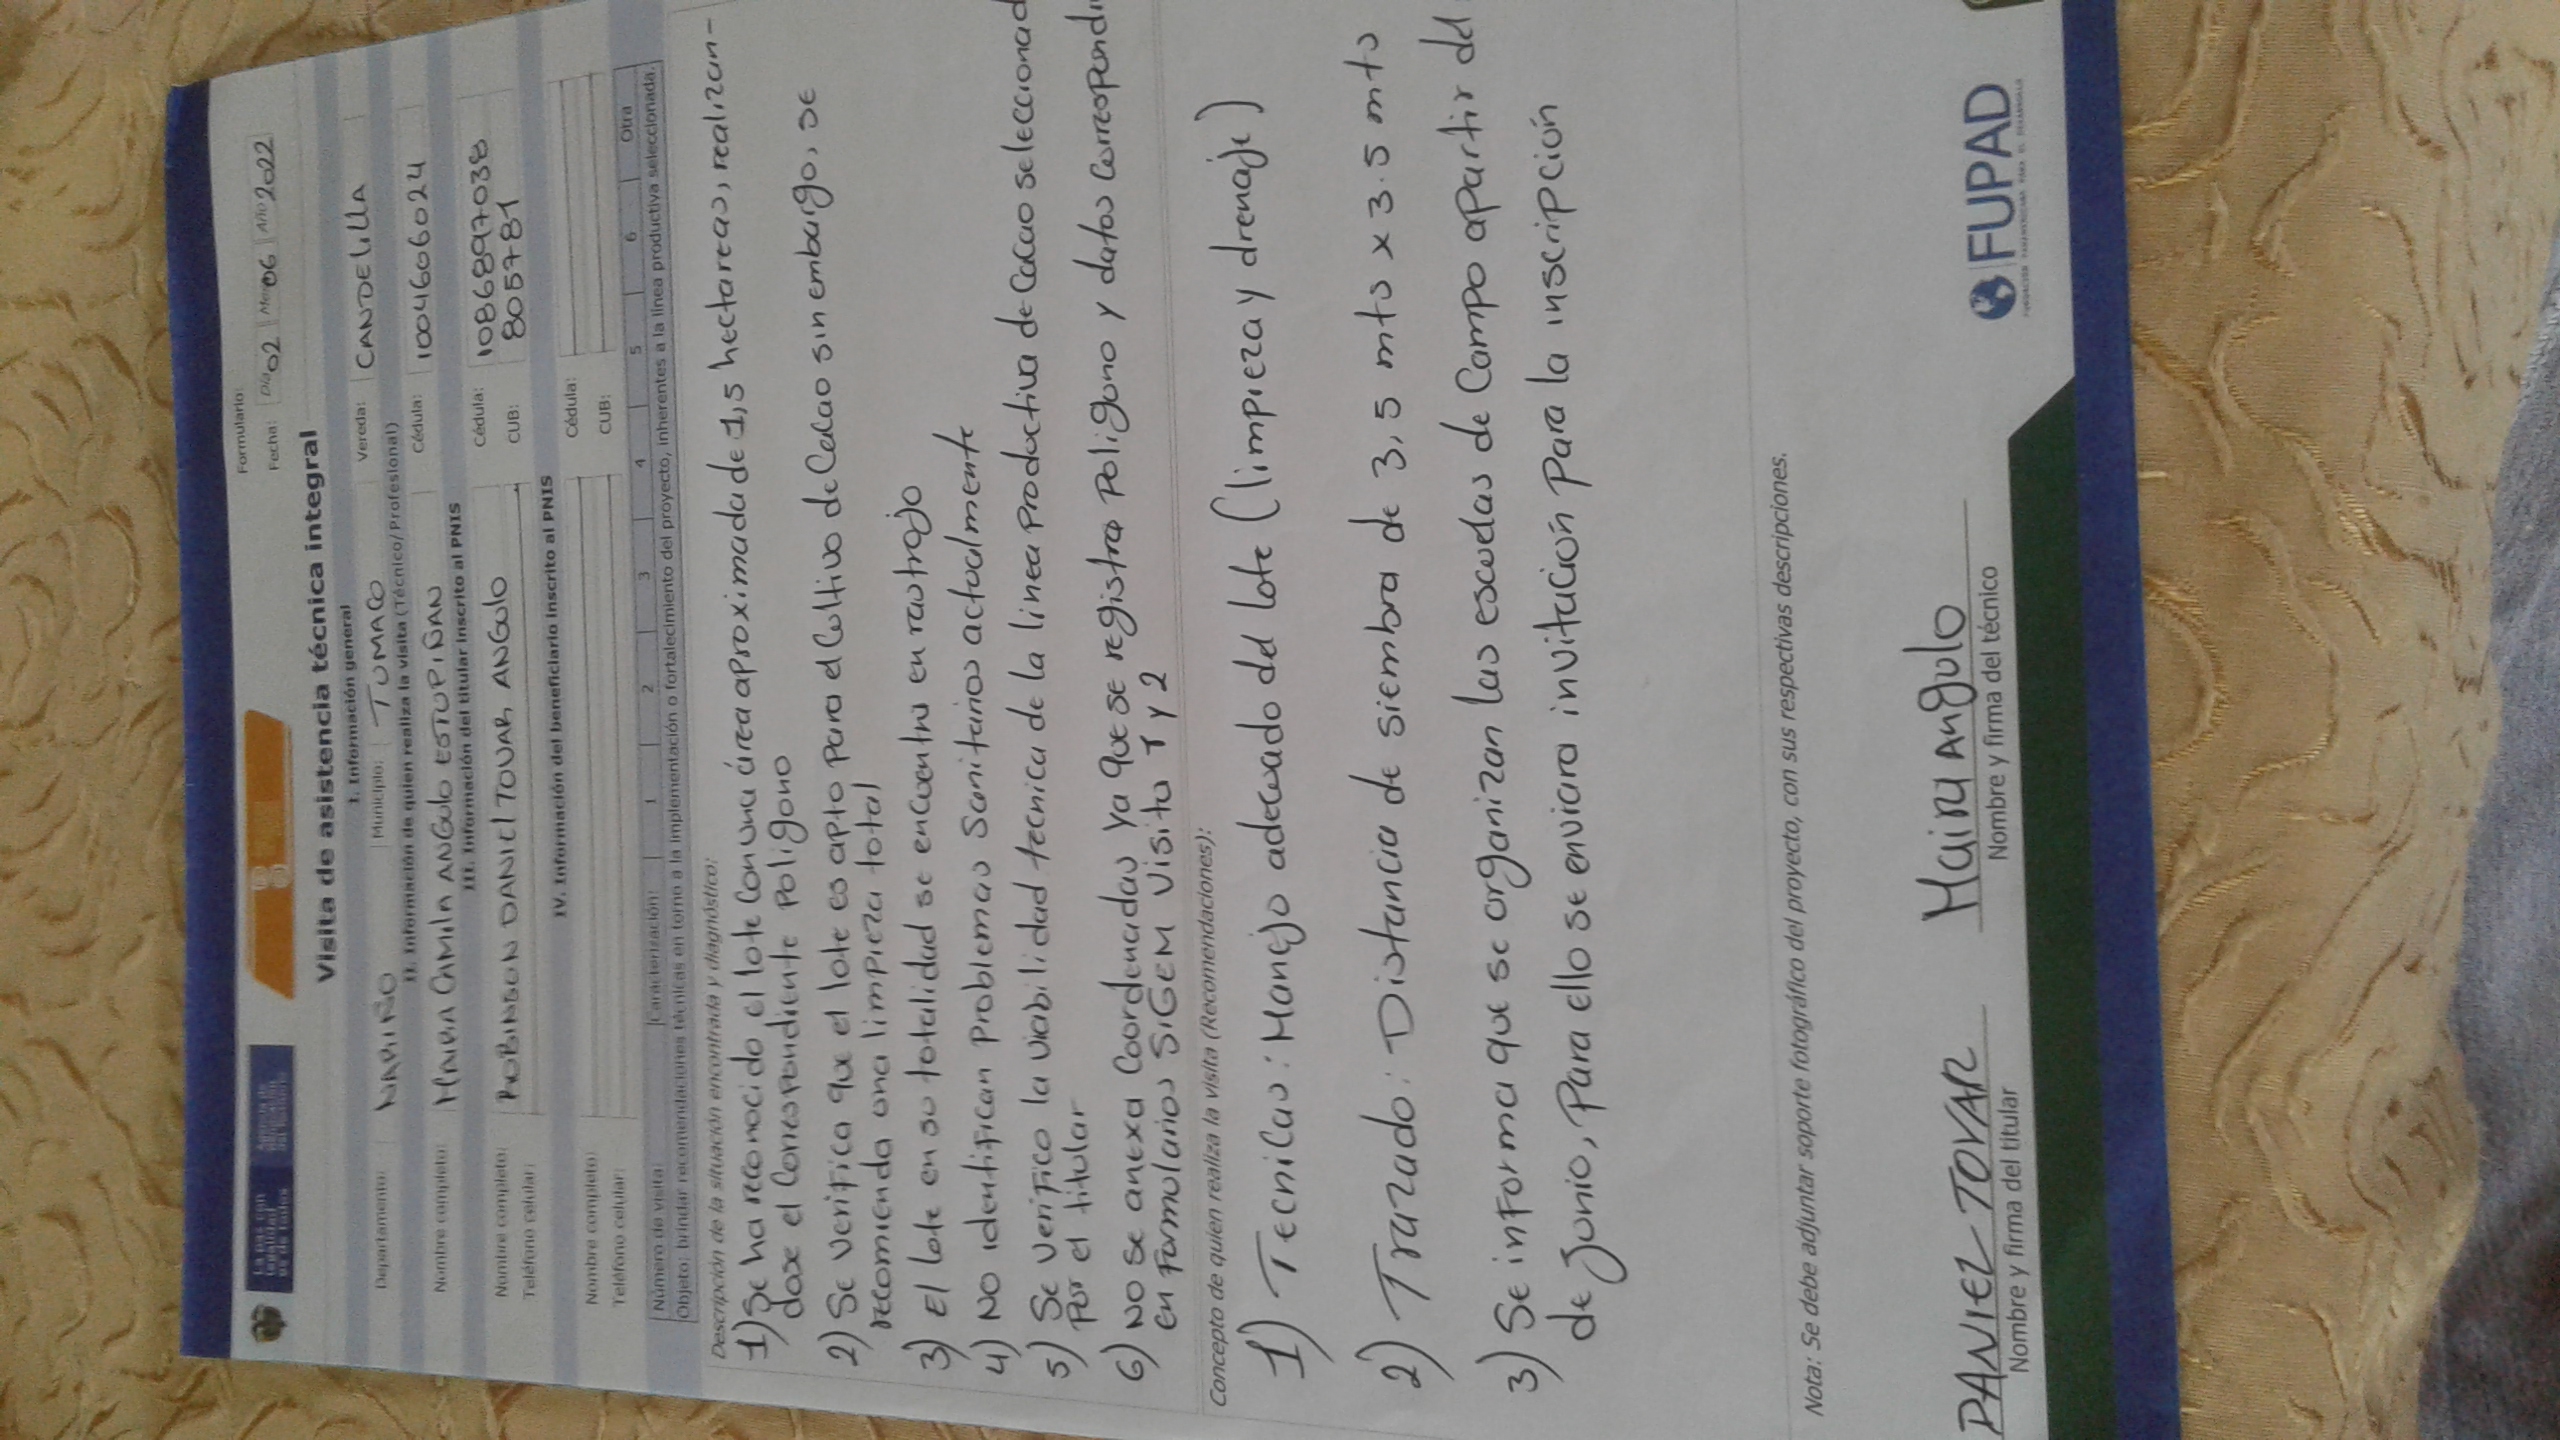 Formulario:
Fecha: Día 02 Mes 06 Año 2022
Visita de asistencia técnica integral
I. Información general
Departamento: NARIÑO Municipio: TUMACO Vereda: CANDELILLA
II. Información de quien realiza la visita (Técnico/Profesional)
Nombre completo: MARIA CAMILA ANGULO ESTUPIÑAN Cédula: 1004606024
III. Información del titular inscrito al PNIS
Nombre completo: ROBINSON DANIEL TOVAR ANGULO Cédula: 1086897038
Teléfono celular: CUB: 805781
IV. Información del beneficiario inscrito al PNIS
Nombre completo: Cédula:
Teléfono celular: CUB:
Número de visita: Caracterización: 1 2 3 4 5 6 Otra
Objeto: brindar recomendaciones técnicas en torno a la implementación o fortalecimiento del proyecto, inherentes a la línea productiva seleccionada.
Descripción de la situación encontrada y diagnóstico:
1) Se ha reconocido el lote con una área aproximada de 1,5 hectareas, realizan-
dose el correspondiente Poligono
2) Se verifica que el lote es apto para el cultivo de Cacao sin embargo, se
recomienda una limpieza total
3) El lote en su totalidad se encuentra en rastrojo
4) No identifican problemas sanitarios actualmente
5) Se verifico la viabilidad tecnica de la linea productiva de Cacao seleccionad
por el titular
6) No se anexa coordenadas ya que se registra poligono y datos correspondi
en formularios SIGEM Visita 1 y 2
Concepto de quien realiza la visita (Recomendaciones):
1) Tecnicas: Manejo adecuado del lote (limpieza y drenaje)
2) Trazado: Distancia de siembra de 3,5 mts x 3.5 mts
3) Se informa que se organizan las escuelas de Campo apartir del
de junio, Para ello se enviara invitación Para la inscripción
Nota: Se debe adjuntar soporte fotográfico del proyecto, con sus respectivas descripciones.
DANIEL TOVAR Maira Angulo
Nombre y firma del titular Nombre y firma del técnico
FUPAD